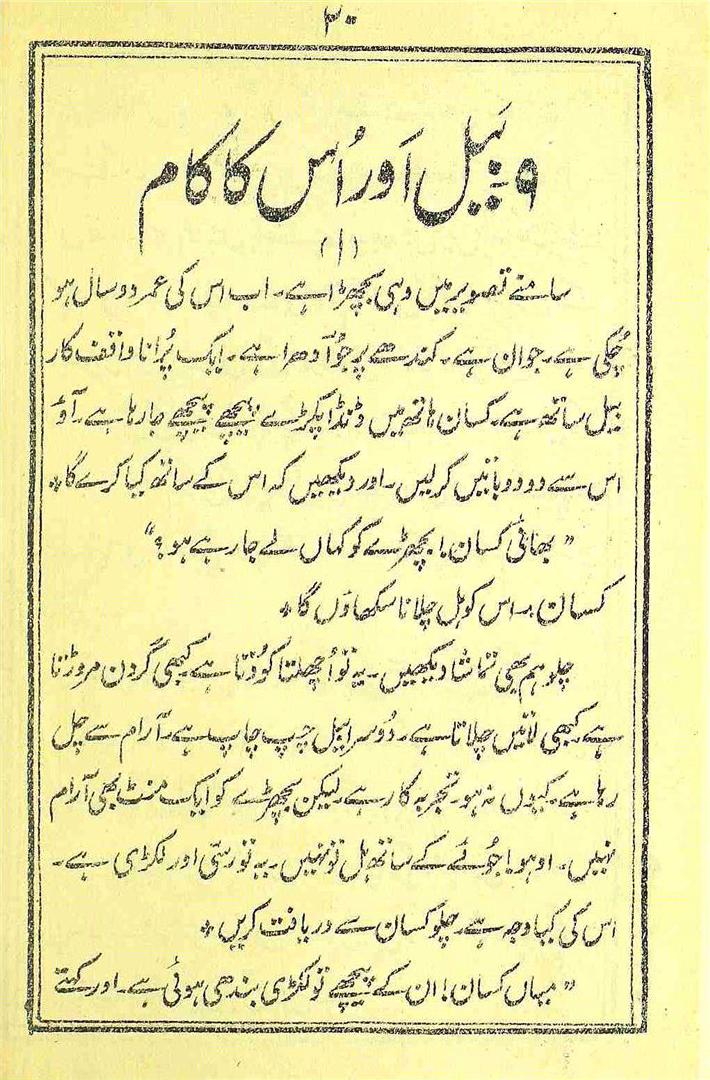 ۳۰
۹۔ بَیل اَور اُس کا کام
(۱)
سامنے تصویر میں وہی بچھڑا ہے۔ اب اس کی عمر دو سال ہو
چُکی ہے۔ جوان ہے۔ کندھے پر جُوآ دھرا ہے۔ ایک پُرانا واقف کار
بیل ساتھ ہے۔ کسان ہاتھ میں ڈنڈا پکڑے پیچھے پیچھے جا رہا ہے۔ آؤ
اس سے دو دو باتیں کر لیں۔ اور دیکھیں کہ اس کے ساتھ کیا کرے گا٭
”بھائی کسان! بچھڑے کو کہاں لے جا رہے ہو؟“
کسان :۔ اس کو ہل چلانا سکھاؤں گا٭
چلو ہم بھی تماشا دیکھیں۔ یہ تو اُچھلتا کُودتا ہے۔ کبھی گردن مروڑتا
ہے کبھی لاتیں چلاتا ہے۔ دُوسرا بیل چپ چاپ ہے۔ آرام سے چل
رہا ہے۔ کیوں نہ ہو۔ تجربہ کار ہے۔ لیکن بچھڑے کو ایک منٹ بھی آرام
نہیں۔ اوہو! جُوئے کے ساتھ ہل تو نہیں۔ یہ تو رسّی اور لکڑی ہے۔
اس کی کیا وجہ ہے۔ چلو کسان سے دریافت کریں٭
”میاں کسان! ان کے پیچھے تو لکڑی بندھی ہوئی ہے۔ اور کہتے